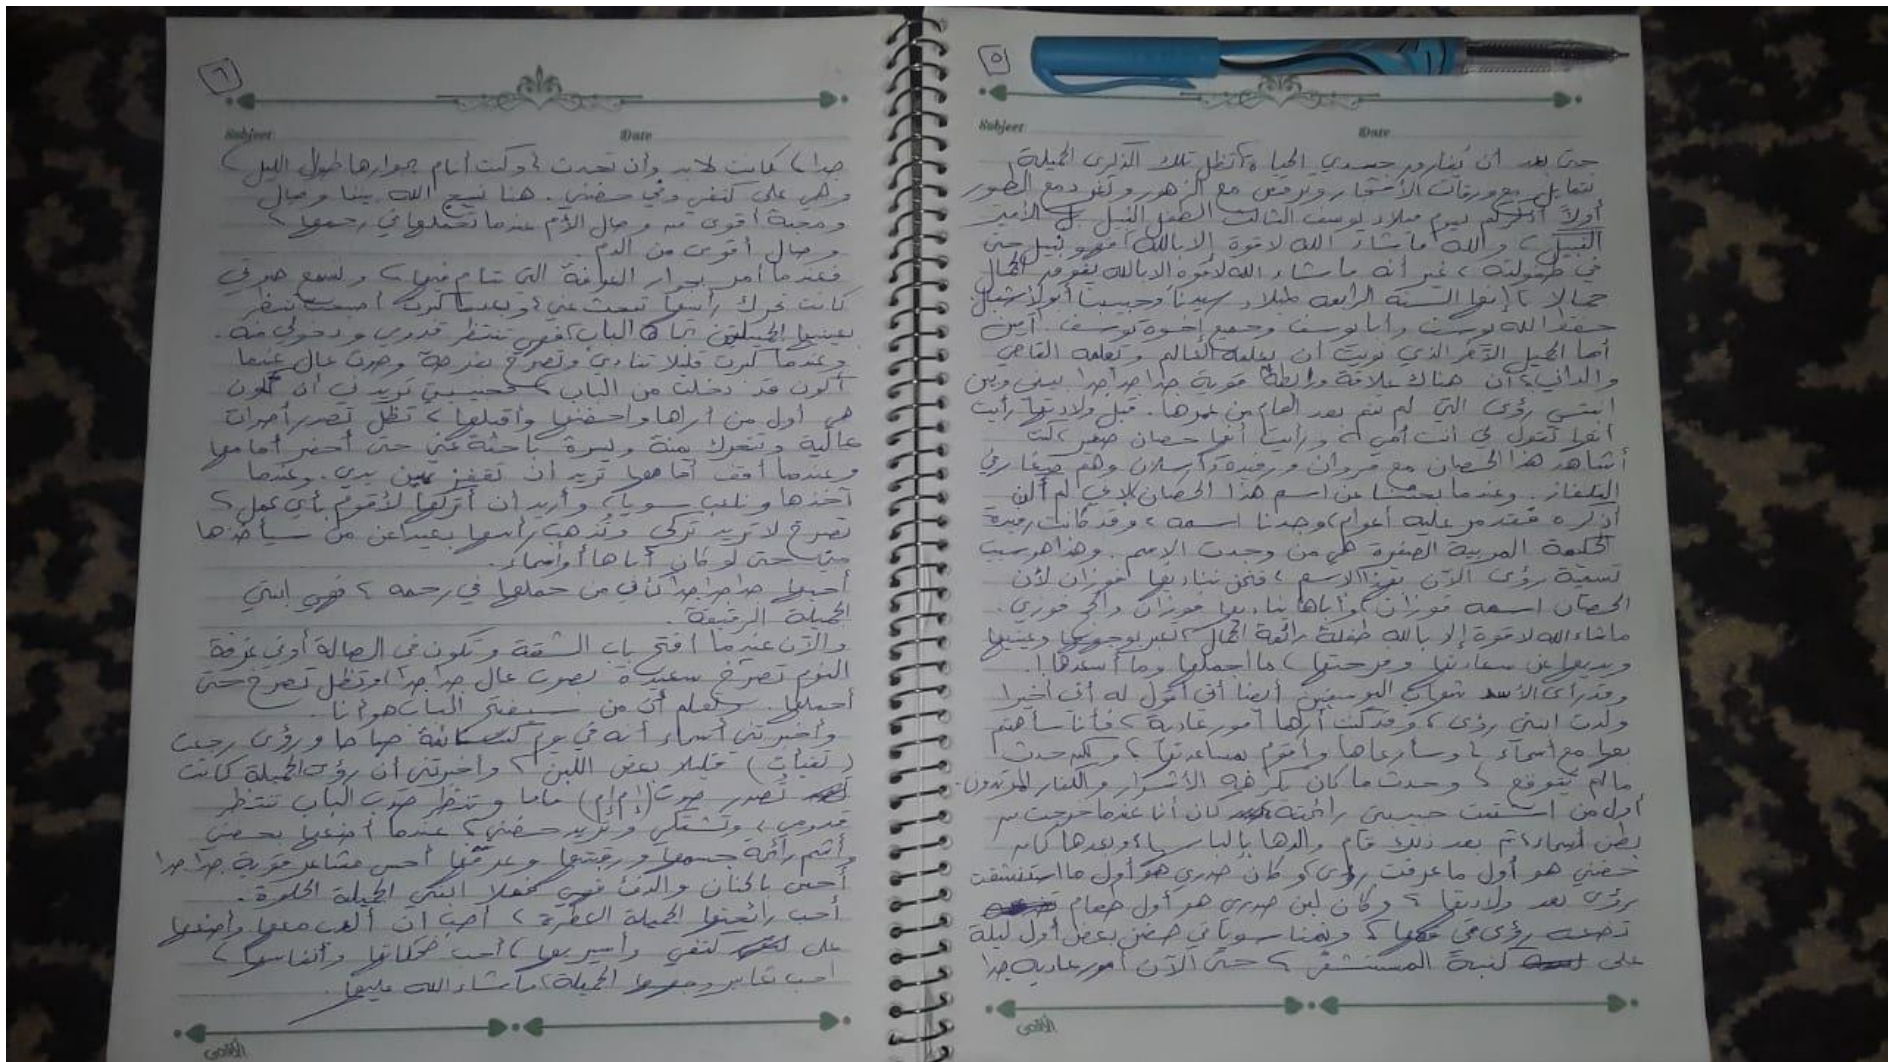 ٥
Subject:
Date
حتى بعد أن يغادر جسدي الحياة، تظل تلك الذكرى الجميلة
تتمايل مع ورقات الأشجار وترقص مع الزهور وتغرد مع الطيور
أولاً يوم ميلاد يوسف الثالث الطفل النبيل بل الأمير
النبيل، والله ما شاء الله لا قوة إلا بالله فهو نبيل حتى
في طفولته، غير أنه ما شاء الله لا قوة إلا بالله يفوق الجمال
جمالا، إنها السنة الرابعة لميلاد سيدنا وحبيبنا أبو الأشبال
حفظ الله يوسف وأبا يوسف وجميع إخوة يوسف. آمين
أما الجميل الذي نويت أن يعلمه العالم ويعلمه القاصي
والداني، أن هناك علاقة ورابطة قوية جدا جدا جدا بيني وبين
ابنتي رؤى التي لم تتم بعد العام من عمرها. قبل ولادتها رأيت
أنها تقول لي أنت أمي، ورأيت أنها حصان صغير، كنت
أشاهد هذا الحصان مع مروان ورفيدة وأرسلان وهم صغار في
التلفاز. وعندما بحثنا عن اسم هذا الحصان لأني لم أكن
أذكره فقد مر عليه أعوام، وجدنا اسمه، وقد كانت رفيدة
الحكيمة المربية الصغيرة هي من وجدت الاسم. وهذا هو سبب
تسمية رؤى الآن بهذا الاسم، فنحن نناديها فوزان لأن
الحصان اسمه فوزان، وأباها يناديها فوزان والحج فوزي.
ما شاء الله لا قوة إلا بالله طفلة رائعة الجمال، تعبر بوجهها وعينيها
ويديها عن سعادتها وفرحتها، ما أجملها وما أسعدها!.
وقد رأى الأسد أيضا أني أقول له أني أخيرا
ولدت ابنتي رؤى، وقد كنت أراها أمور عادية، فأنا سأهتم
بها مع أسماء، وسأرعاها وأقوم بمساعدتها، ولكن حدث
مالم يتوقع، وحدث ما كان يكرهه الأشرار والكفار المرتدون.
أول من استنشقت حبيبتي رائحته كان أنا عندما خرجت من
بطن أسماء، ثم بعد ذلك قام والدها بإلباسها، وبعدها كان
حضني هو أول ما عرفت رؤى، وكان صدري هو أول ما استنشقت
رؤى بعد ولادتها، وكان لبن صدري هو أول طعام
تضعه رؤى في فمها، ونمنا سويا في حضن بعض أول ليلة
على كنبة المستشفى، حتى الآن أمور عادية جدا
الأقصى
٦
Subject:
Date
جدا، كانت لابد وأن تحدث، وكنت أنام بجوارها طوال الليل
وهي على كتفي وفي حضني. هنا نسج الله بيننا وصال
ومحبة أقوى من وصال الأم عندما تحملها في رحمها،
وصال أقوى من الدم.
فعندما أمر بجوار الغرفة التي تنام فيها، وتسمع صوتي
كانت تحرك رأسها تبحث عني، وبعدما كبرت أصبحت تنظر
بعينيها الجميلتين تجاه الباب، فهي تنتظر قدومي ودخولي منه.
وعندما كبرت قليلا تنادي وتصرخ بفرحة وصوت عال عندما
أكون قد دخلت من الباب، فحبيبتي تريدني أن تكون
هي أول من أراها وأحضنها وأقبلها، تظل تصدر أصوات
عالية وتتحرك يمنة ويسرة باحثة عني حتى أحضر أمامها
وعندما أقف أمامها تريد أن تقفز بين يدي. وعندما
آخذها ونلعب سويا، وأريد أن أتركها لأقوم بأي عمل،
تصرخ لا تريد تركي وتذهب برأسها بعيدا عن من سيأخذها
مني حتى لو كان أباها أو أسماء.
أحبها جدا جدا جدا كأني من حملها في رحمه، فهي ابنتي
الجميلة الرقيقة.
والآن عندما أفتح باب الشقة وتكون في الصالة أو في غرفة
النوم تصرخ سعيدة بصوت عال جدا جدا، وتظل تصرخ حتى
أحملها. وتعلم أن من سيفتح الباب هو أنا.
وأخبرتني أسماء أنه في يوم كنت نائمة صباحا ورؤى رجعت
(تقيأت) قليلا بعض اللبن، وأخبرتني أن رؤى الجميلة كانت
تصدر صوت (إم إم) ماما وتنظر صوب الباب تنتظر
قدومي، وتشتكي وتريد حضني، عندما أضعها بحضني
وأشم رائحة جسمها ورقبتها وعرقها أحس مشاعر قوية جدا جدا
أحس بالحنان والدفئ فهي فعلا ابنتي الجميلة الحلوة.
أحب رائحتها الجميلة العطرة، أحب أن ألعب معها وأضعها
على كتفي وأسير بها، أحب ضحكاتها وأنفاسها،
أحب تعابير وجهها الجميلة، ما شاء الله عليها.
الأقصى